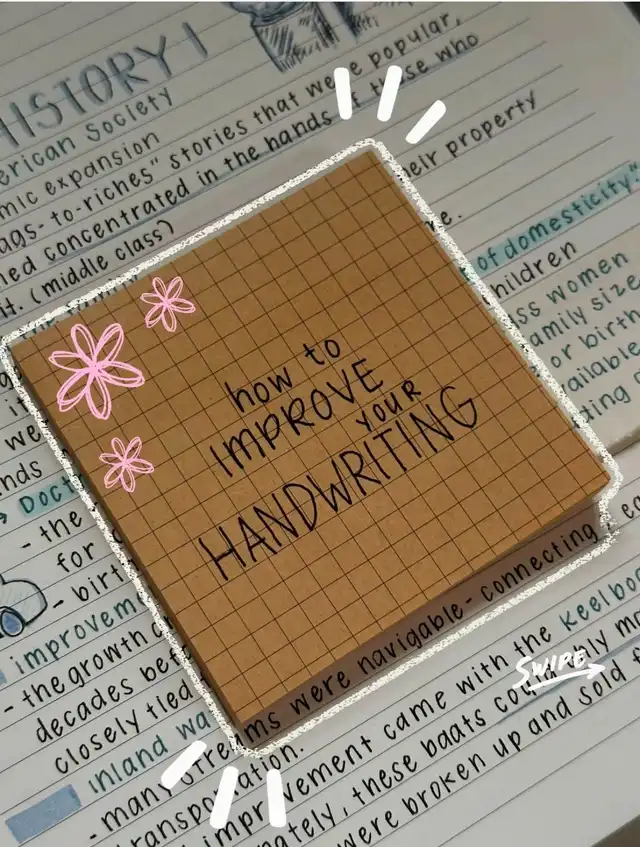 HISTORY I
erican Society
mic expansion
ags-to-riches" stories that were popular,
ed concentrated in the hands of those who
(middle class)
heir property
re.
of domesticity"
children
ss women
amily size
or birth
vailable
ting
how to
IMPROVE
YOUR
HANDWRITING
we
nds
Doct
- the
for
- birt
improvem
- the growth o
decades bef
closely tied
inland wa
- many streams were navigable - connecting
transportation.
improvement came with the Keelboa
nately, these baats could only mo
were broken up and sold f
SWIPE